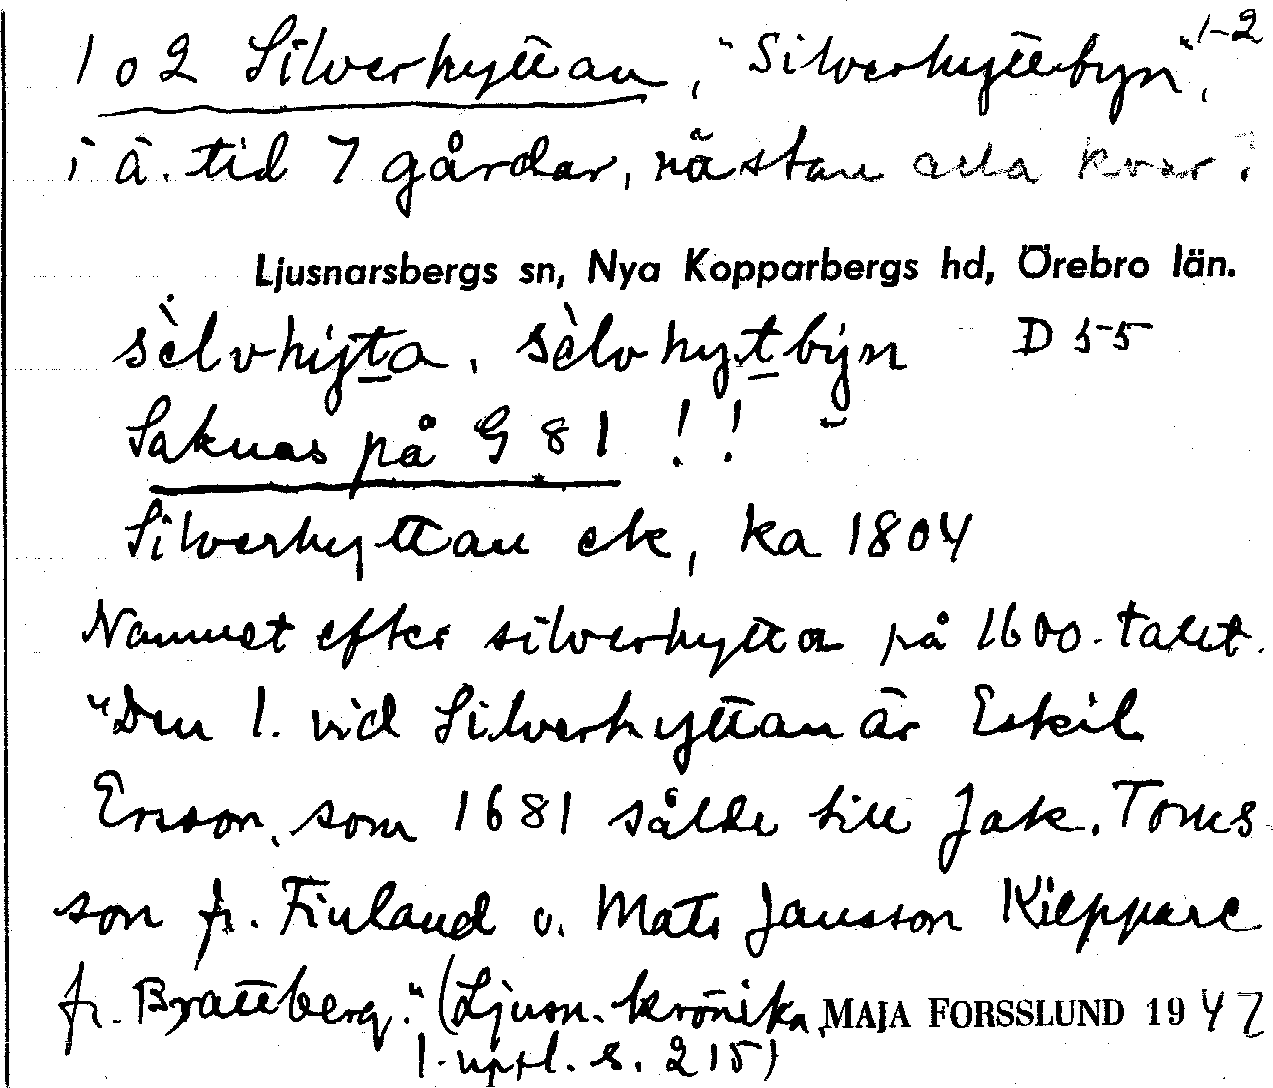 1 o 2 Silverhyttan, "Silverhyttebyn" 1-2,
i ä. tid 7 gårdar, nästan alla kvar.
Ljusnarsbergs sn, Nya Kopparbergs hd, Örebro län.
sèlvhyta, sèlvhytbyn D 55
Saknas på G 81 !!
Silverhyttan ek, ka 1804
Namnet efter silverhytta på 1600-talet.
"Den 1. vid Silverhyttan är Eskil
Ersson, som 1681 sålde till Jak. Toms
son fr. Finland o. Mats Jansson Kleppare
fr. Brattberg." (Ljusn. krönika,
1. uppl. s. 215)
MAJA FORSSLUND 1947